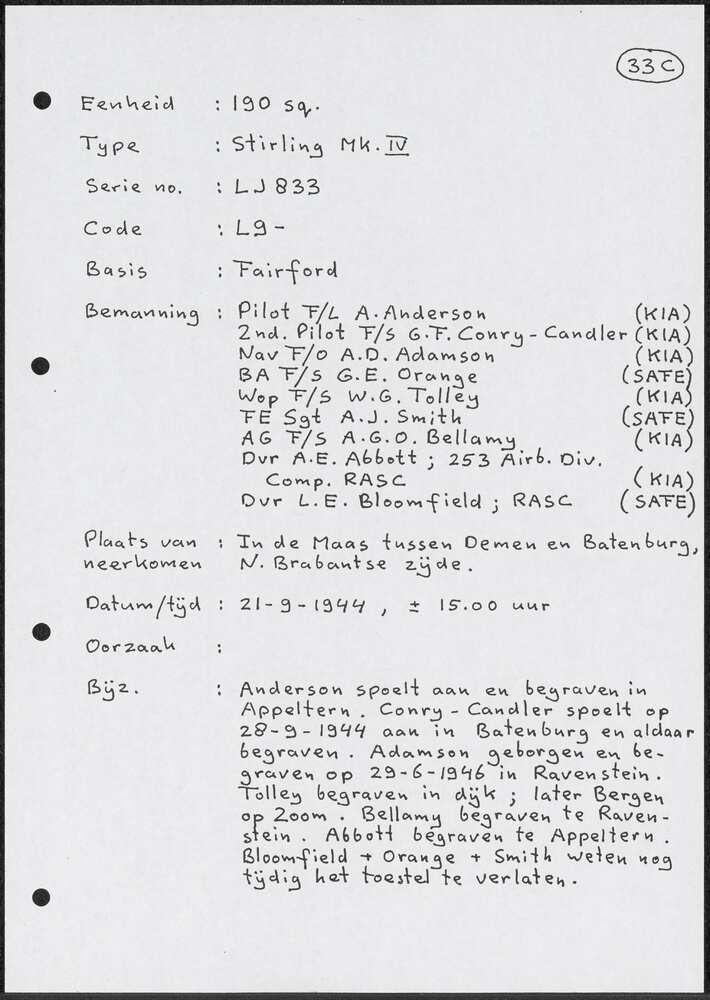 33 C
Eenheid : 190 sq.
Type : Stirling Mk. IV
Serie no. : LJ 833
Code : L9 -
Basis : Fairford
Bemanning : Pilot F/L A. Anderson (KIA)
2nd. Pilot F/S G.F. Conry - Candler (KIA)
Nav F/O A.D. Adamson (KIA)
BA F/S G.E. Orange (SAFE)
Wop F/S W.G. Tolley (KIA)
FE Sgt A.J. Smith (SAFE)
AG F/S A.G.O. Bellamy (KIA)
Dvr A.E. Abbott ; 253 Airb. Div.
Comp. RASC (KIA)
Dvr L.E. Bloomfield ; RASC (SAFE)
Plaats van : In de Maas tussen Demen en Batenburg,
neerkomen N. Brabantse zijde.
Datum/tijd : 21-9-1944 , ± 15.00 uur
Oorzaak :
Bijz. : Anderson spoelt aan en begraven in
Appeltern. Conry - Candler spoelt op
28-9-1944 aan in Batenburg en aldaar
begraven. Adamson geborgen en be-
graven op 29-6-1946 in Ravenstein.
Tolley begraven in dijk ; later Bergen
op Zoom. Bellamy begraven te Raven-
stein. Abbott begraven te Appeltern.
Bloomfield + Orange + Smith weten nog
tijdig het toestel te verlaten.